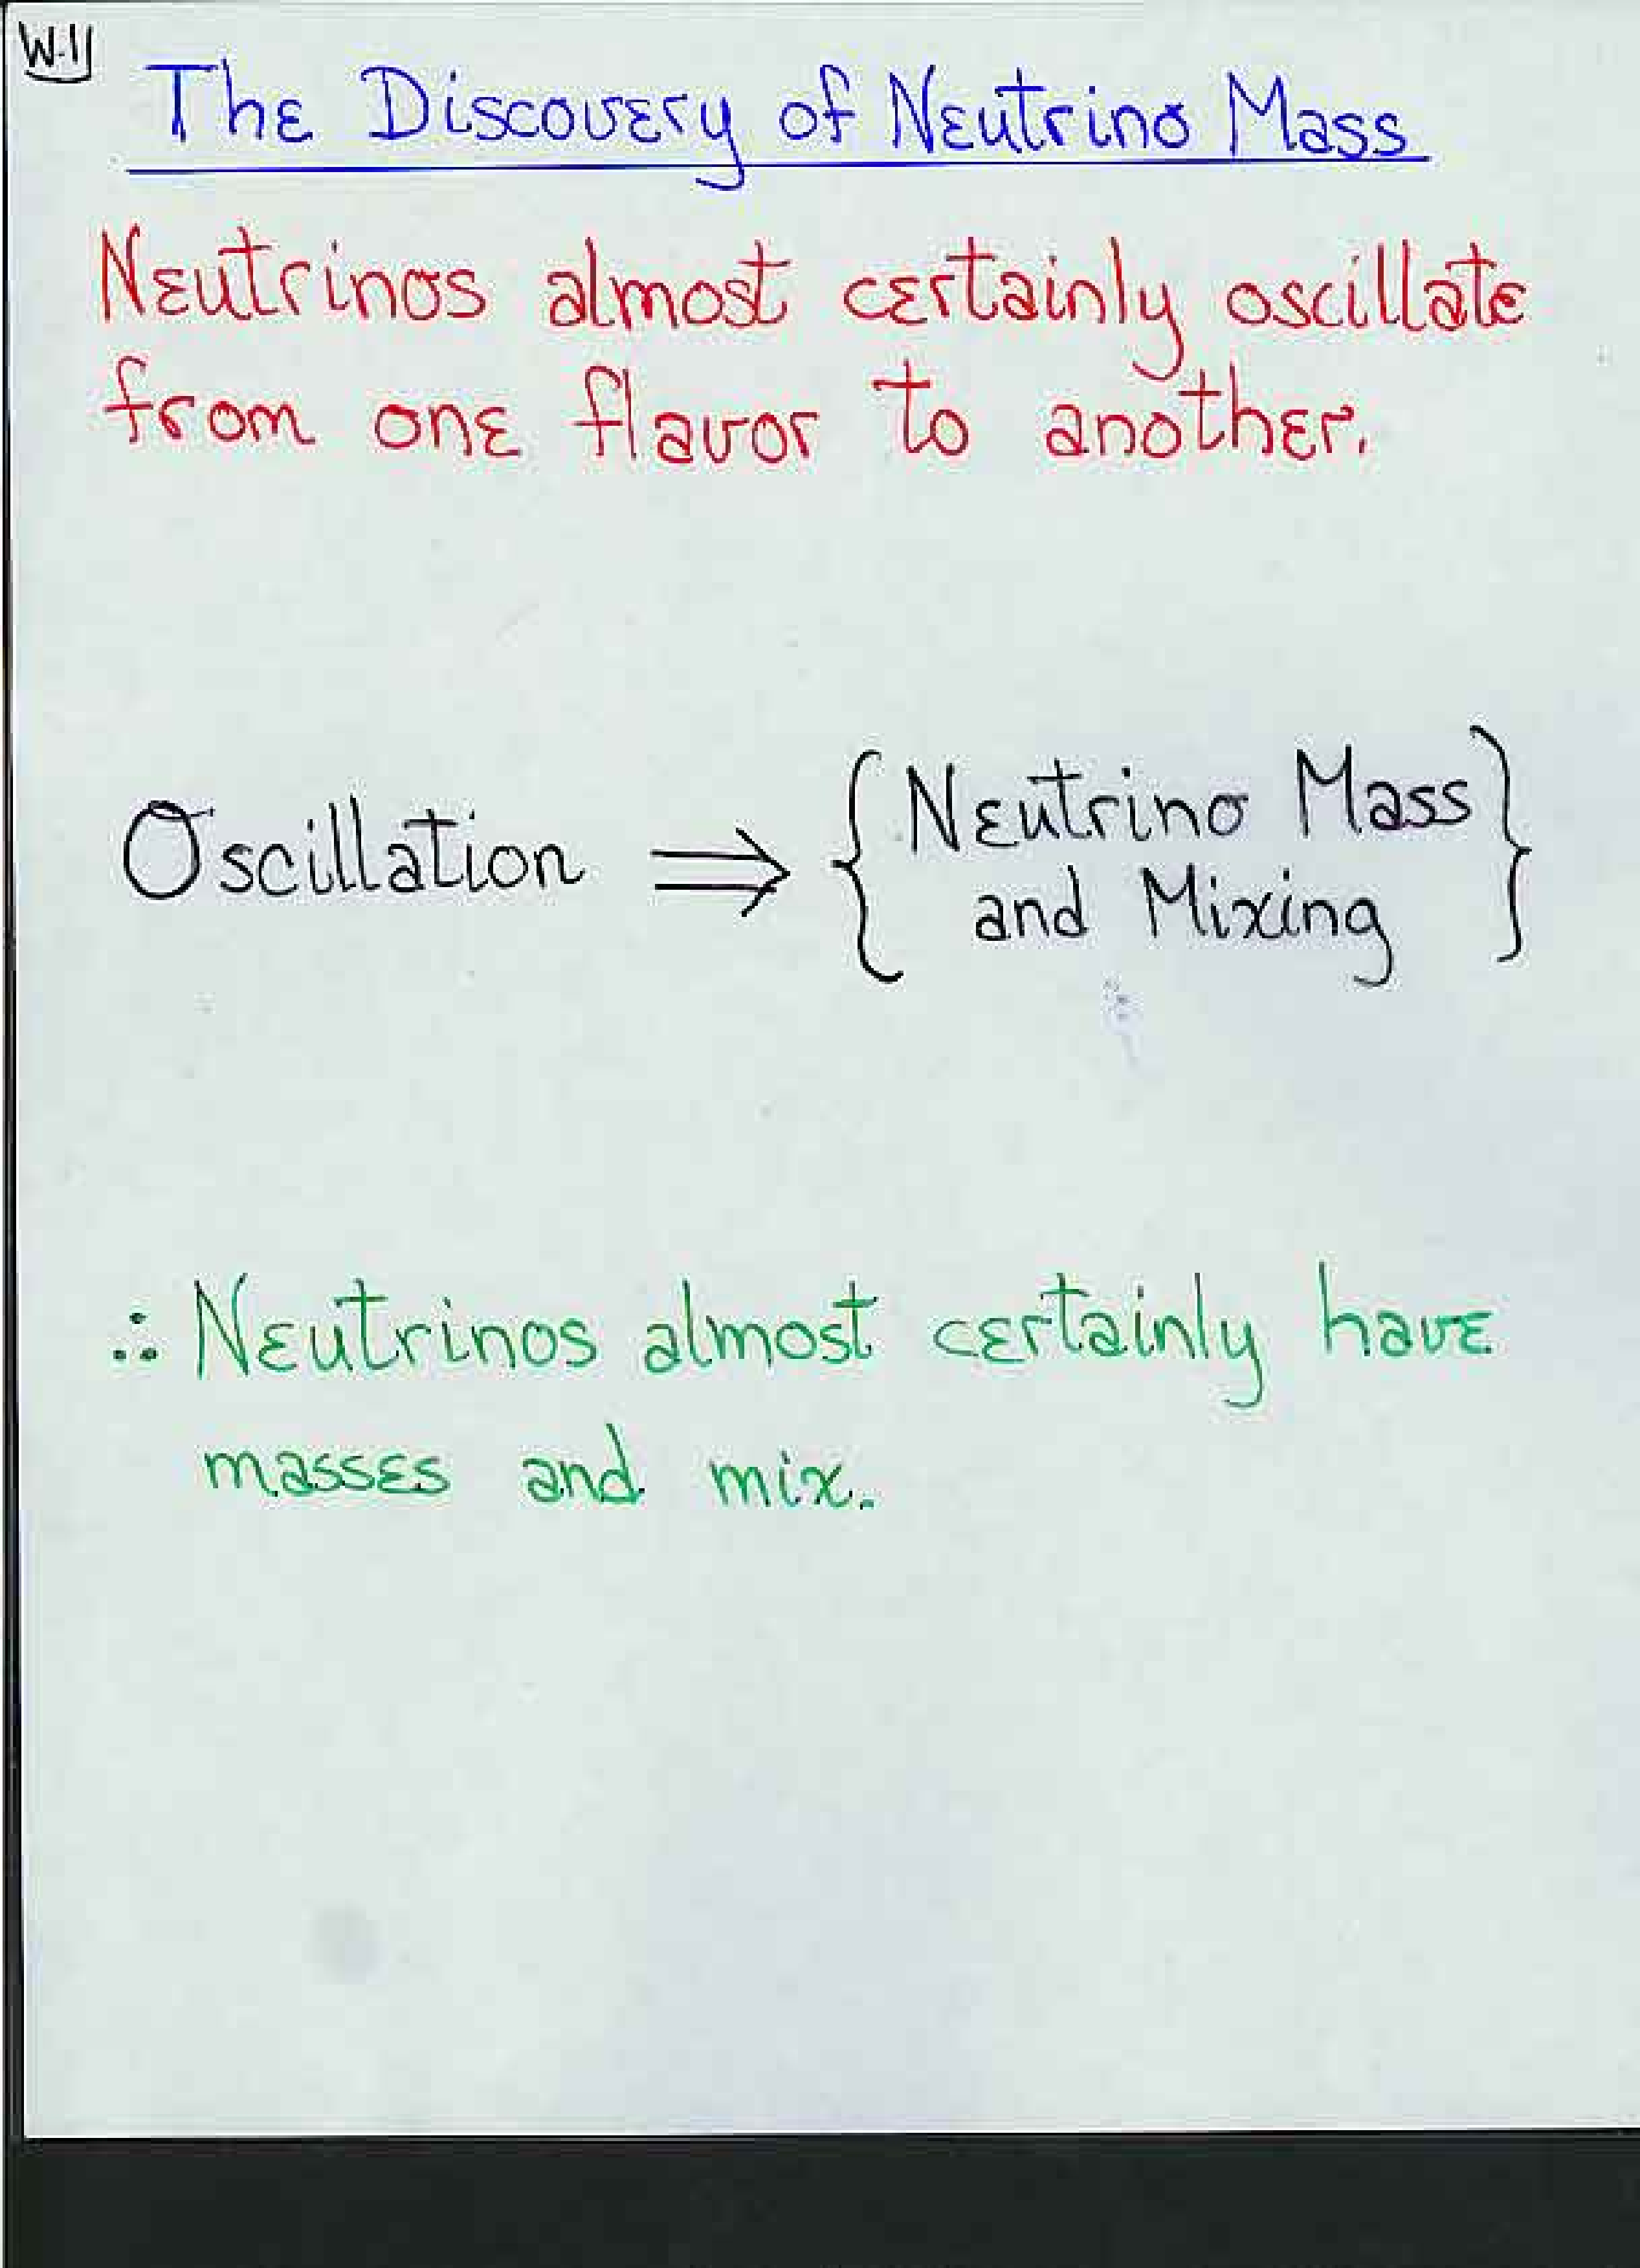 W-11
The Discovery of Neutrino Mass
Neutrinos almost certainly oscillate
from one flavor to another.
Oscillation ⟹ { Neutrino Mass
and Mixing }
∴ Neutrinos almost certainly have
masses and mix.